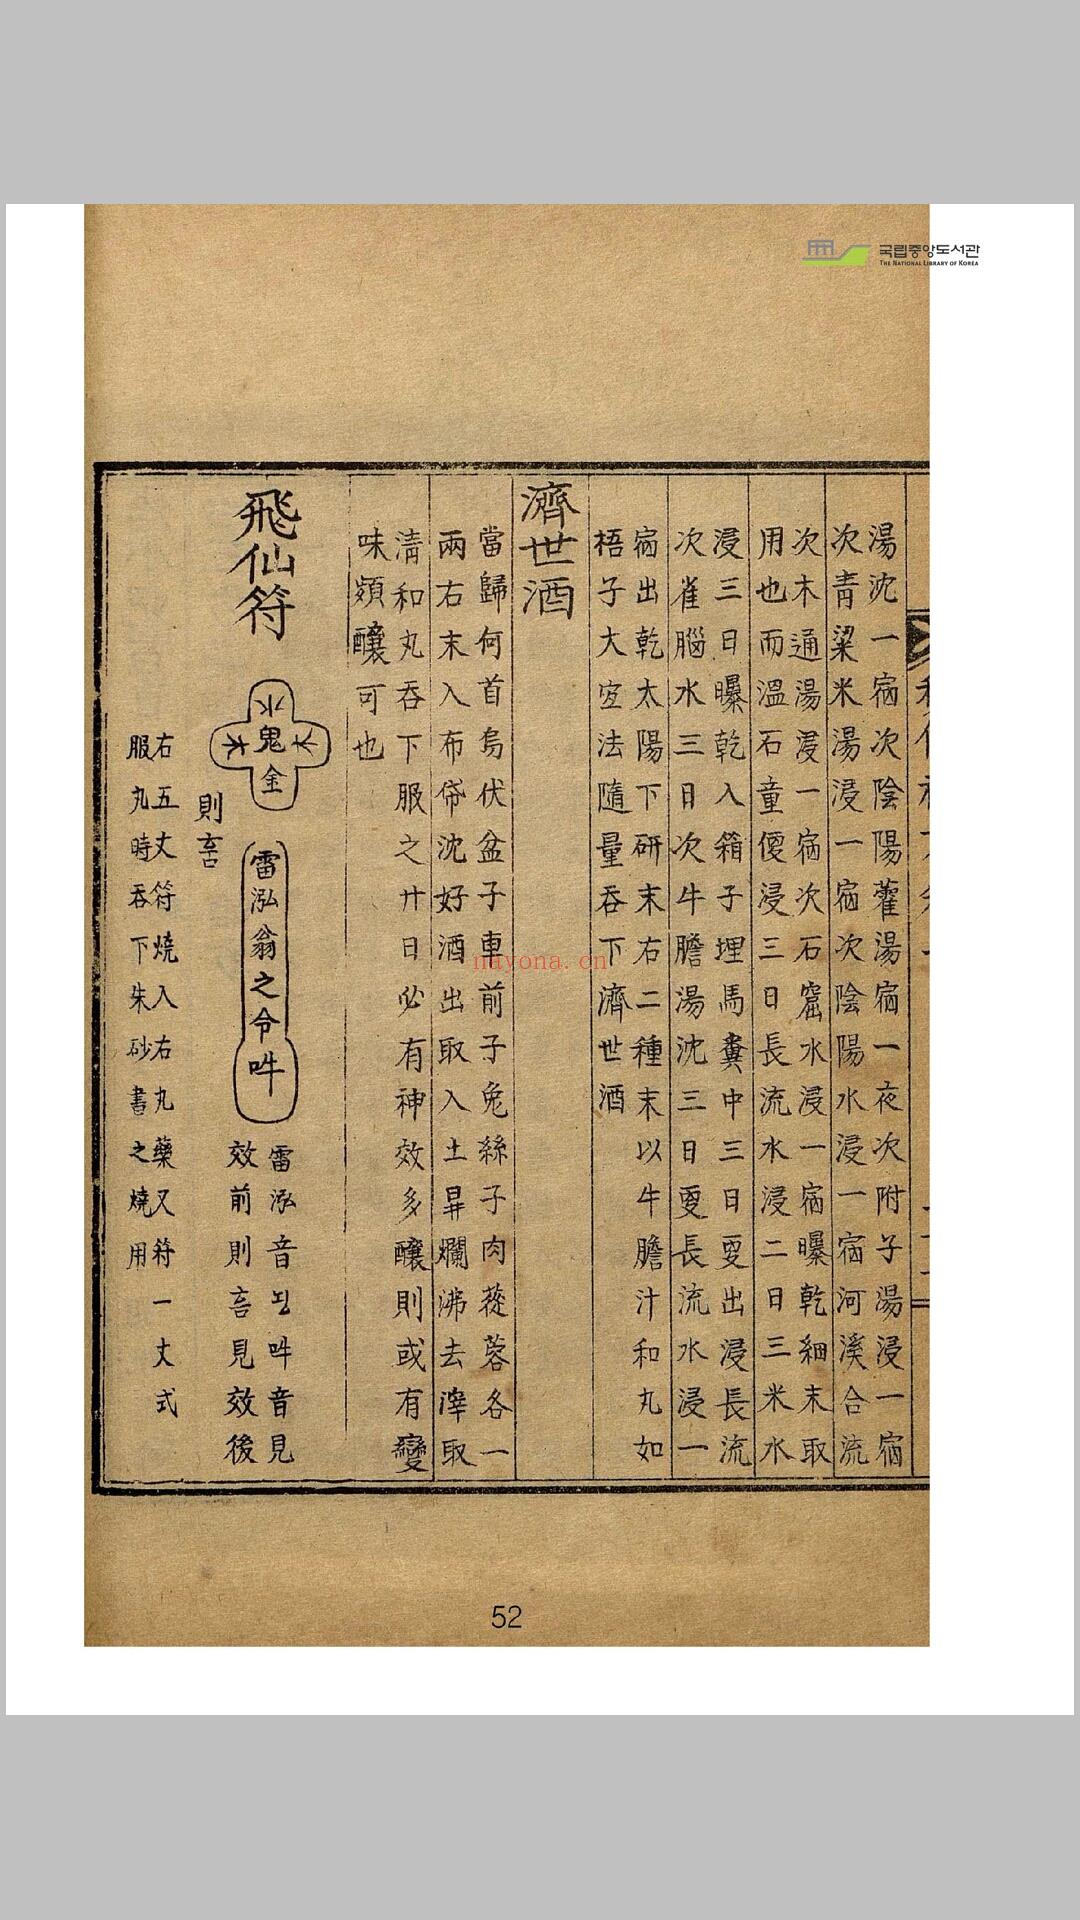 국립중앙도서관
THE NATIONAL LIBRARY OF KOREA
湯沈一宿次陰陽藿湯宿一夜次附子湯浸一宿
次青粱米湯浸一宿次陰陽水浸一宿河溪合流
次木通湯浸一宿次石窟水浸一宿曝乾細末取
用也而溫石童便浸三日長流水浸二日三米水
浸三日曝乾入箱子埋馬糞中三日更出浸長流
次雀腦水三日次牛膽湯沈三日更長流水浸一
宿出乾太陽下研末右二種末以牛膽汁和丸如
梧子大定法隨量吞下濟世酒
濟世酒
當歸何首烏伏盆子車前子兔絲子肉蓯蓉各一
兩右末入布帒沈好酒出取入土昇爛沸去滓取
清和丸吞下服之廾日必有神效多釀則或有變
味頻釀可也
飛仙符
水
木鬼木
金
雷泓翁之令吽
雷泓音 吽音見
效前則言見效後
則言
右五丈符燒入右丸藥又符一丈式
服丸時吞下朱砂書之燒用
nayona.cn
52